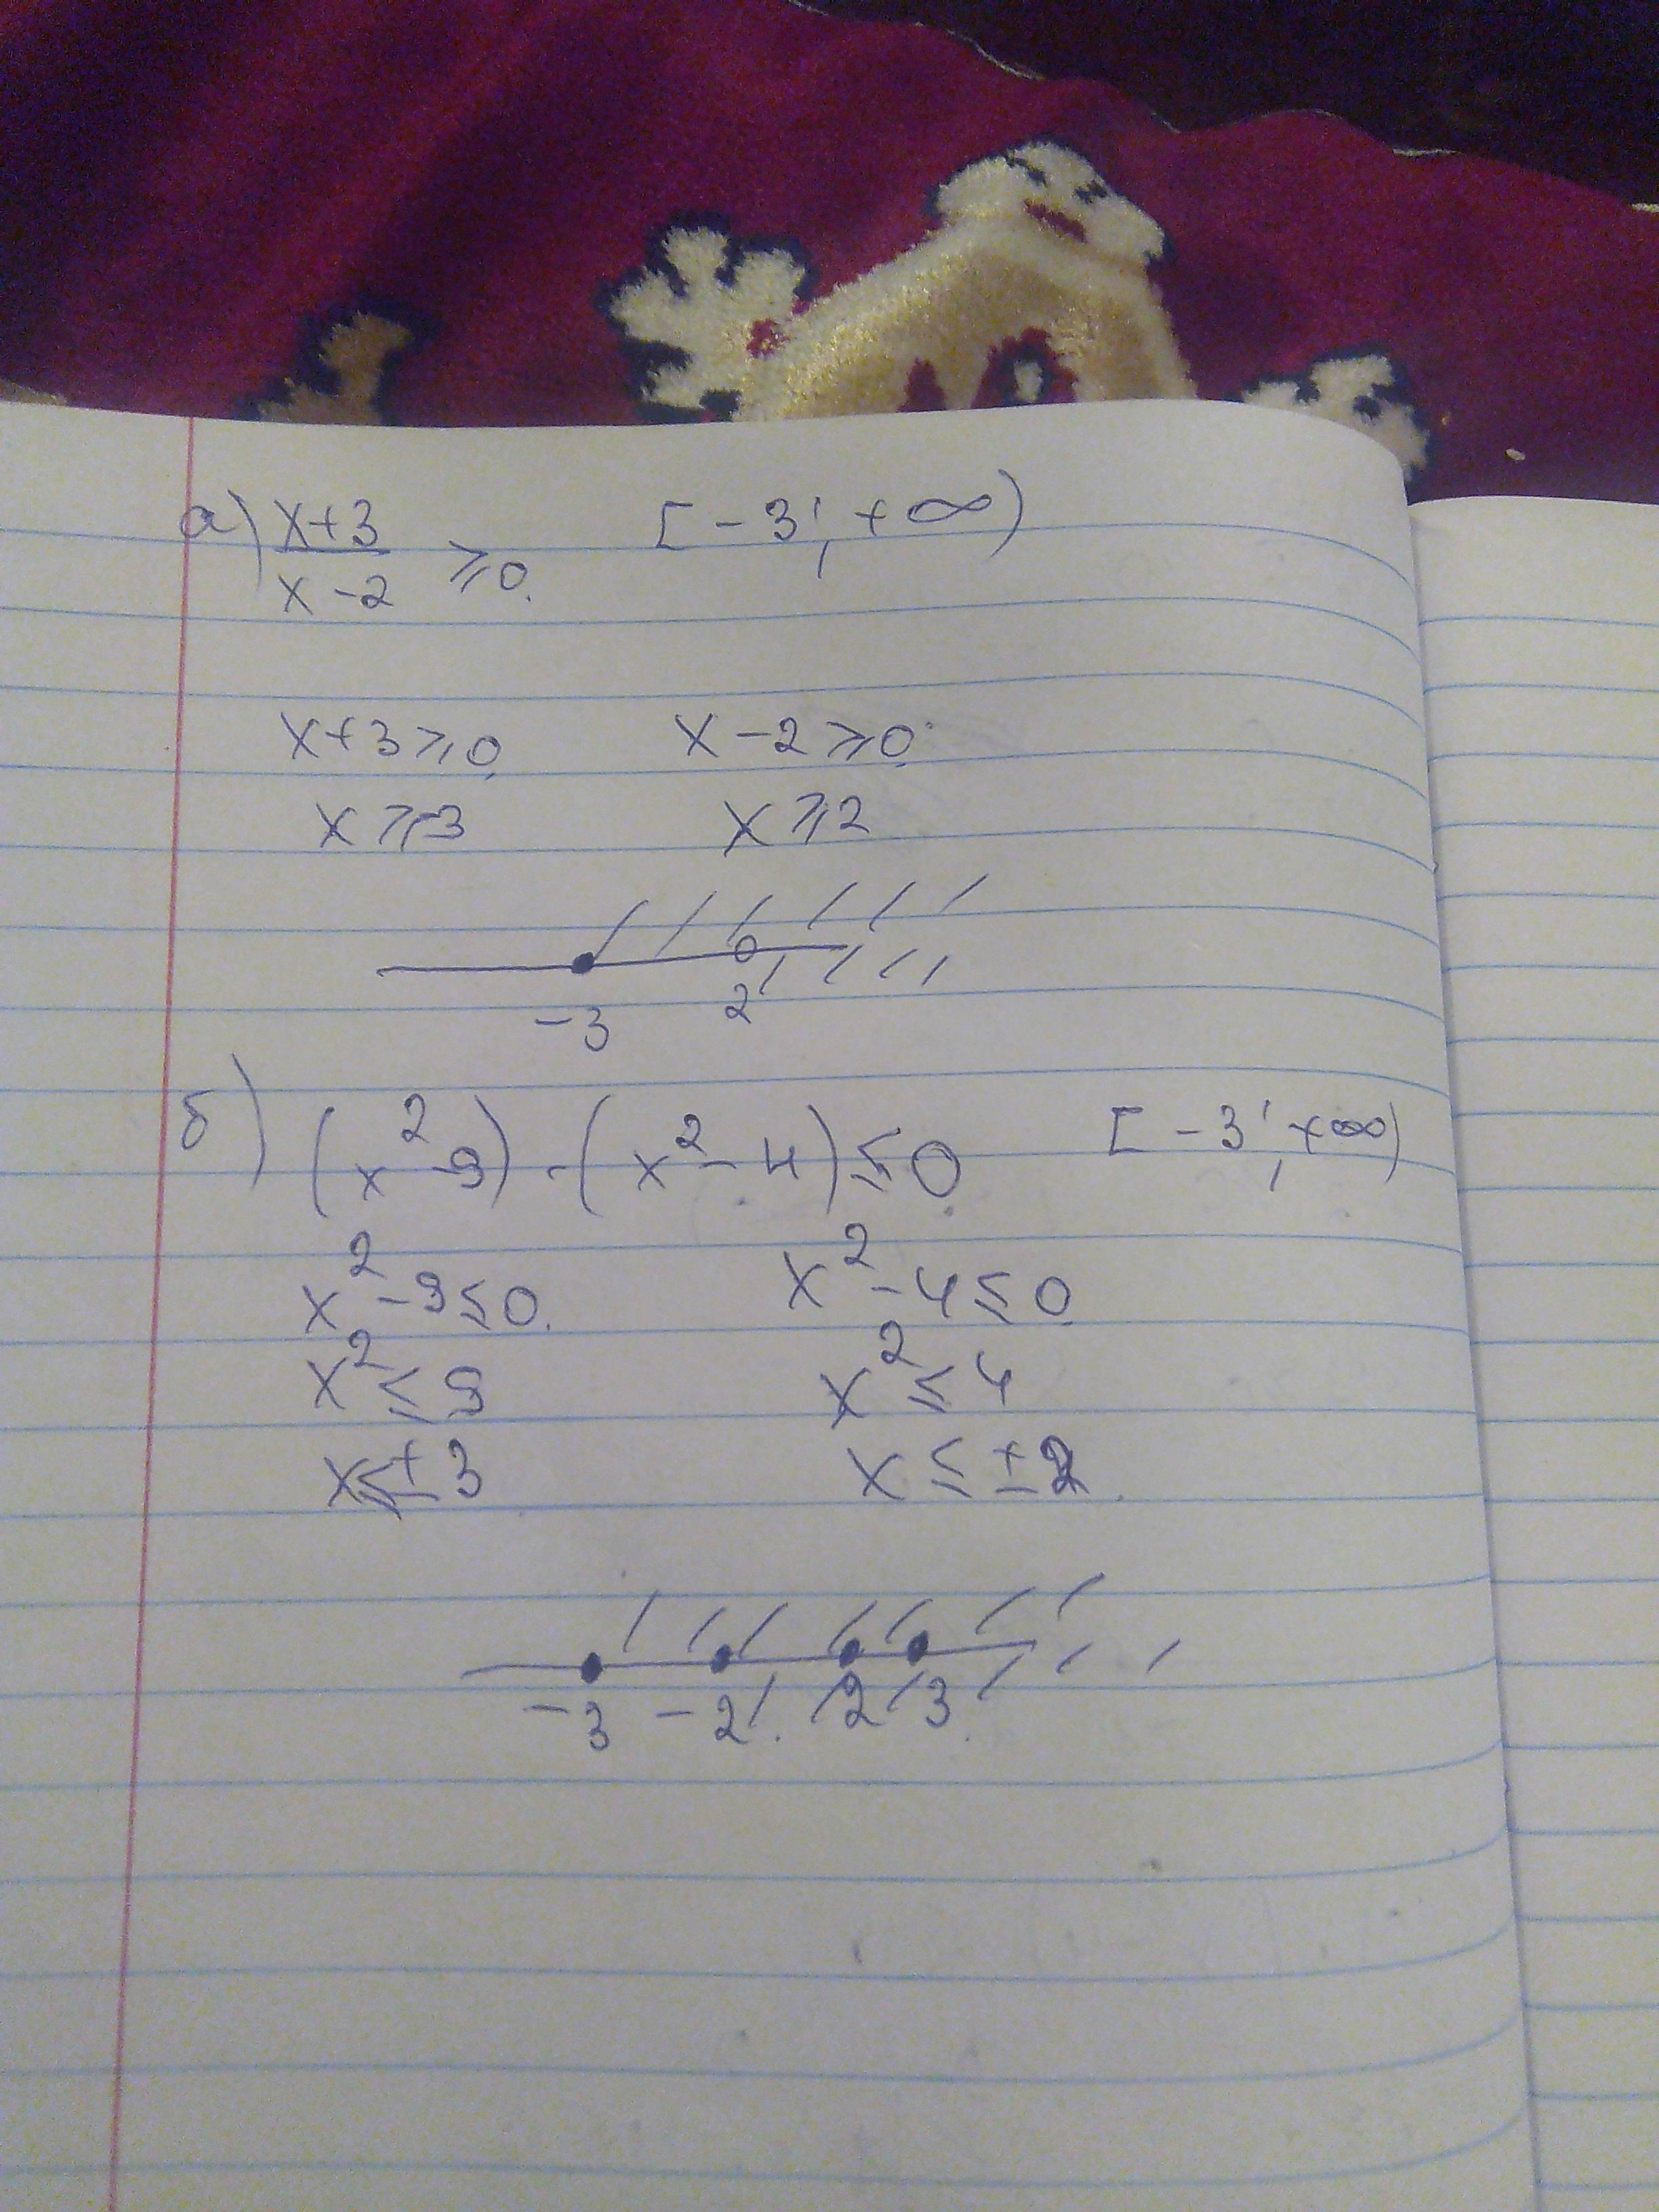 а) x+3/x-2 ≥0. [-3; +∞)
x+3≥0 x-2≥0
x≥-3 x≥2
-3 2
б) (x²-9)·(x²-4)≤0 [-3; +∞)
x²-9≤0. x²-4≤0
x²≤9 x²≤4
x≤±3 x≤±2
-3 -2 2 3